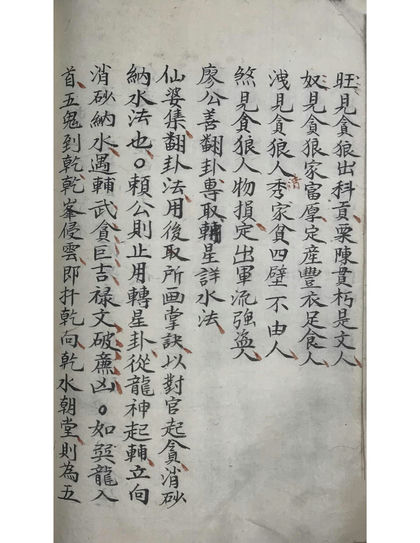 旺見貪狼出科貢粟陳貫朽是文人
奴見貪狼家富厚定產豐衣足食人
洩見貪狼人秀家貧四壁不由人
清
煞見貪狼人物損定出軍流強盗人
廖公善翻卦專取輔星詳水法
仙婆集翻卦法用後取所画掌訣以對官起貪消砂
納水法也。賴公則止用轉星卦從龍神起輔立向
消砂納水遇輔武貪巨吉禄文破廉凶。如巽龍入
首五鬼到乾乾峯侵雲即扦乾向乾水朝堂則為五